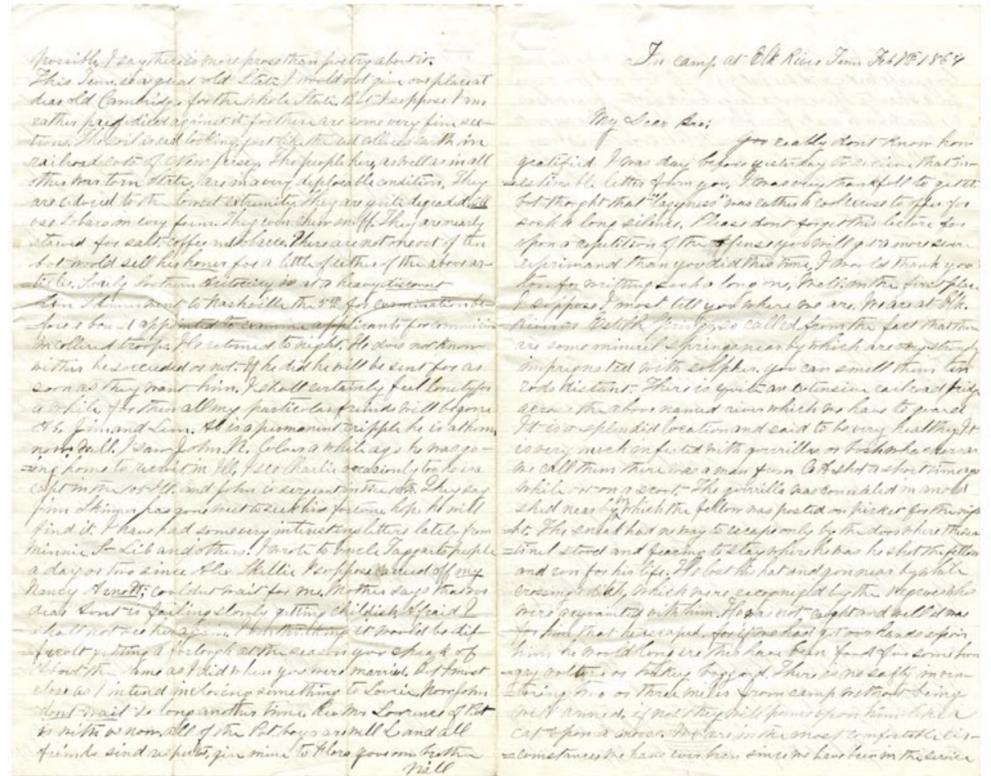 In camp at Elk River Tenn Feb 7th 1864
My Dear Bro:
You really dont know how
gratified I was day before yesterday to receive that ines-
=timable letter from you, I was very thankfull to get it
but thought that "lazyness" was rather a cool excuse to offer for
such a long silence. Please dont forget this lecture for
upon a repetition of the offense you will get a more severe
reprimand than you did this time. I must thank you
for writting such a long one. Well in the first place
I suppose I must tell you where we are. We are at Elk
River or Estill Springs, so called from the fact that there
are some mineral springs near by which are very strongly
impregnated with sulpher, you can smell them ten
rods distant. There is quite an extensive railroad bridge
across the above named river which we have to guard
It is a splendid location and said to be very healthy. It
is very much infested with gorrillas or bushwhackers as
we call them there was a man from Co. shot a short time ago
while out on a scout. The gorrilla was concealed in an old
shed near by which the fellow was posted on picket for the nig-
ht. The had no way to escape only by the door where the sen-
=tinel stood and fearing to stay where he was he shot the fellow
and run for his life. He lost his hat and gun near by while
crossing a ditch, which were recognized by the negroes who
were acquainted with him. He was not caught and well it was
for him that he escaped, for if we had got our hands upon
him he would long ere this have been food for some hun-
gry vulture or turkey buzzard. There is no safty in ven-
turing two or three miles from camp without being
well armed, if not they will pounce upon him like a
cat upon a mouse. We are in the most comfortable cir-
=cumstances we have ever been since we have been in the service
possible, I say there is more prose than poetry about it.
This Tenn. is a great old State, I would not give our place at
dear old Cambridge for the whole State. But I suppose I am
rather prejudiced against it for there are some very fine sec-
tions. The soil is red looking just like the red colored earth in
railroad cuts of New Jersey. The people here, as well as in all
this war torn State, are in a very deplorable condition. They
are reduced to the lowest extremity they are quite degraded, all
use tobacco in every form. They even chew snuff. They are nearly
starved for salt coffee and tobacco. There are not one out of ten
but would sell his honor for a little of either of the above ar-
ticles. Lovely Southern is at a heavy discount
went to Nashville the 5th for examination be-
fore a board appointed to examine applicants for commissions
in collered troops. He returned to night. He does not know
whither he succeeded or not. If he did he will be sent for as
soon as they want him. I shall certainly feel lonely for
a while, for then all my particular friends will be gone
Jim and He is a permanent cripple he is at home
now. Well, I saw John N. a while ago he was go-
ing home to recruit in Ill, I see Charlie occasionly too he is a
capt in the 105 Ill. and John is sergeant in the They say
Jim Skinner has gone west to seek his fortune hope he will
find it. I have had some very interesting letters lately from
Minnie S Lib and others. I wrote to Uncle Taggarts people
a day or two since Millie I suppose carried off my
Nancy couldn't wait for me. Mother says that our
dear Aunt is failing slowly getting childish, afraid I
shall not see her again. I am thinking it would be dif-
ficult getting a furlough at the season you speak of
about the same as I did when you were married. But I must
close as I intend inclosing something to Now John
dont wait so long another time. Rev Mr Lawrence of Pot
is with us now, all of the Pot. boys are well and all
friends send respects, give mine to Flora from your brother
Will